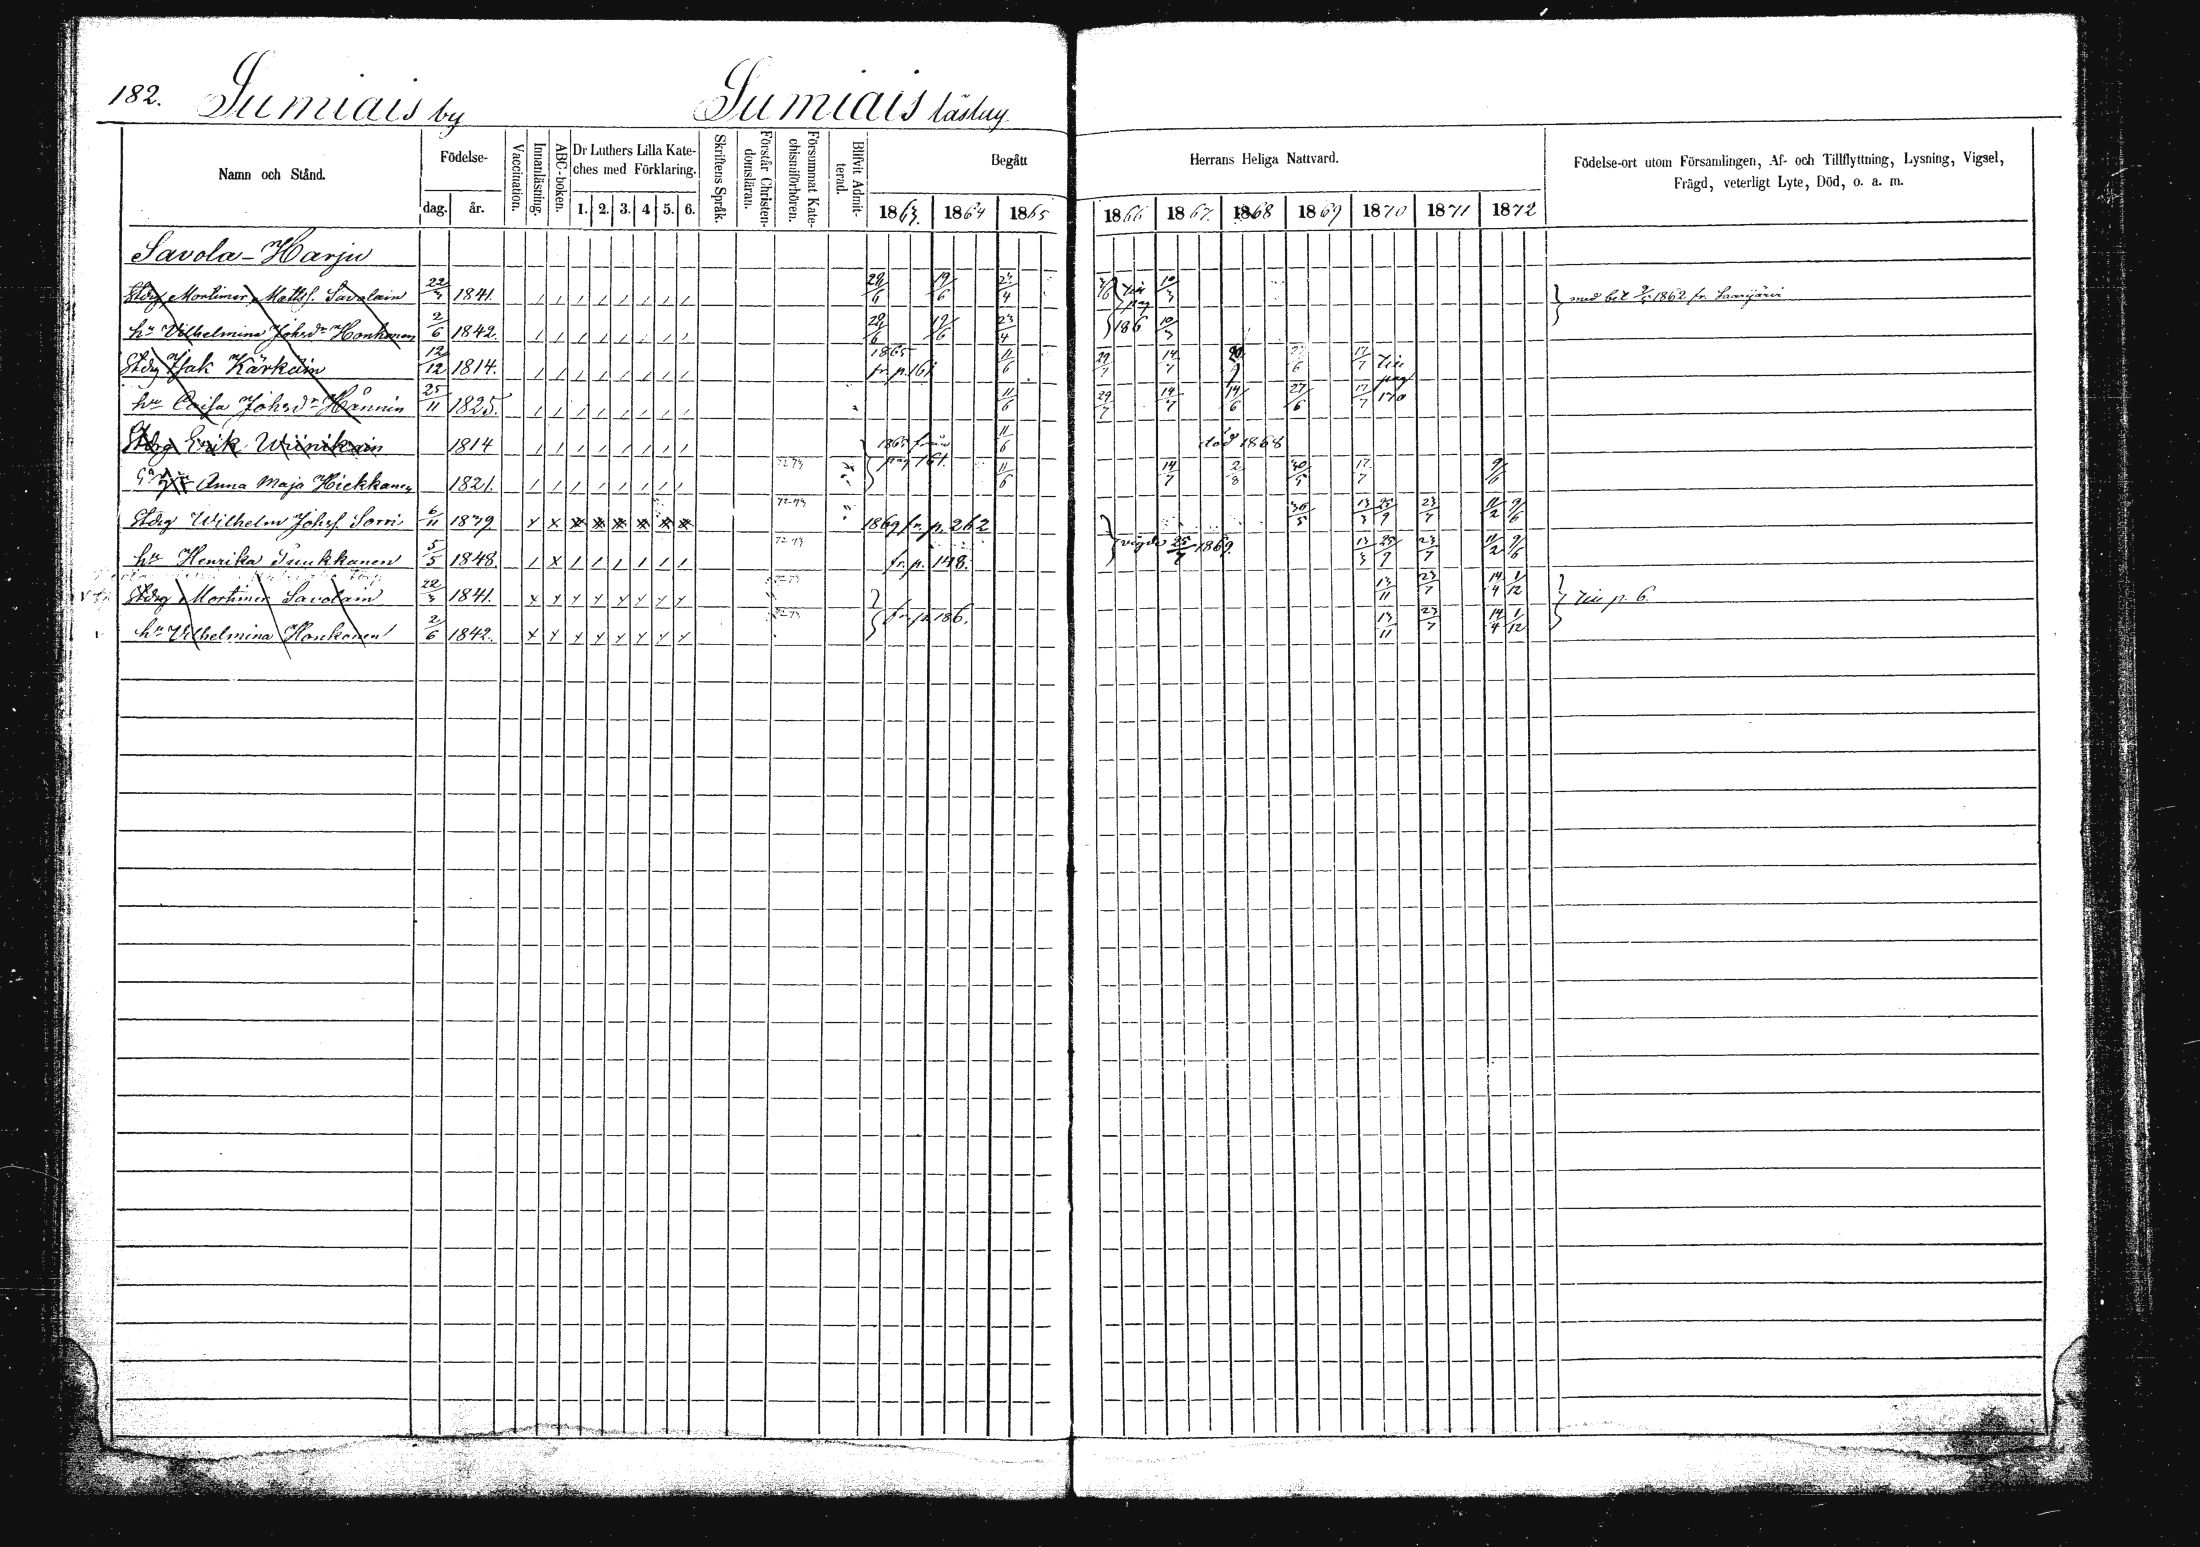 182. Sumiais by Sumiais läslag
Namn och Stånd. Födelse- dag. år. Vaccination. Innanläsning. ABC-boken. Dr Luthers Lilla Kateches med Förklaring. 1. 2. 3. 4 5. 6. Skriftens Språk. Förstår Christendomsläran. Försummat Katechismiförhören. Blifvit Admitterad. Begått Herrans Heliga Nattvard. Födelse-ort utom Församlingen, Af- och Tillflyttning, Lysning, Vigsel, Frägd, veterligt Lyte, Död, o. a. m.
1863. 1864 1865 1866 1867. 1868 1869 1870 1871 1872
Savola-Harju
Stdrg Mortimer Mattsf. Savolain 22/3 1841. 28/6 19/6 23/4 till pag 186 10/3 med bet 1862 fr. Saarijärvi
hu Vilhelmina Johsdr Honkonen 2/6 1842. 28/6 19/6 23/4 10/3
Stdrg Isak Kärkäin 12/12 1814. 1865 fr. p. 161 11/6 29/7 14/7 17/7 till pag 170
hu Caisa Johsdr Hännin 25/11 1825. 11/6 29/7 14/7 14/6 27/6 17/7
Stdrg Erik Wiinikain 1814 1865 från pag. 161. 11/6 död 1868
Anna Maja Hiekkanen 1821. 72-73 11/6 14/7 2/8 30/5 17/7 9/6
Stdrg Wilhelm Johsf. Sorri 6/11 1849 72-73 1869 fr. p. 262 30/5 13/3 25/9 23/7 11/2 9/6
hu Henrika Puukkanen 5/5 1848. 72-73 fr. p. 148. vigde 25/7 1869. 13/3 25/9 23/7 11/2 9/6
Stdrg Mortimer Savolain 22/3 1841. 72-73 fr. p. 186. 13/11 23/7 14/4 1/12 till p. 6.
hu Wilhelmina Honkonen 2/6 1842. 72-73 13/11 23/7 14/4 1/12